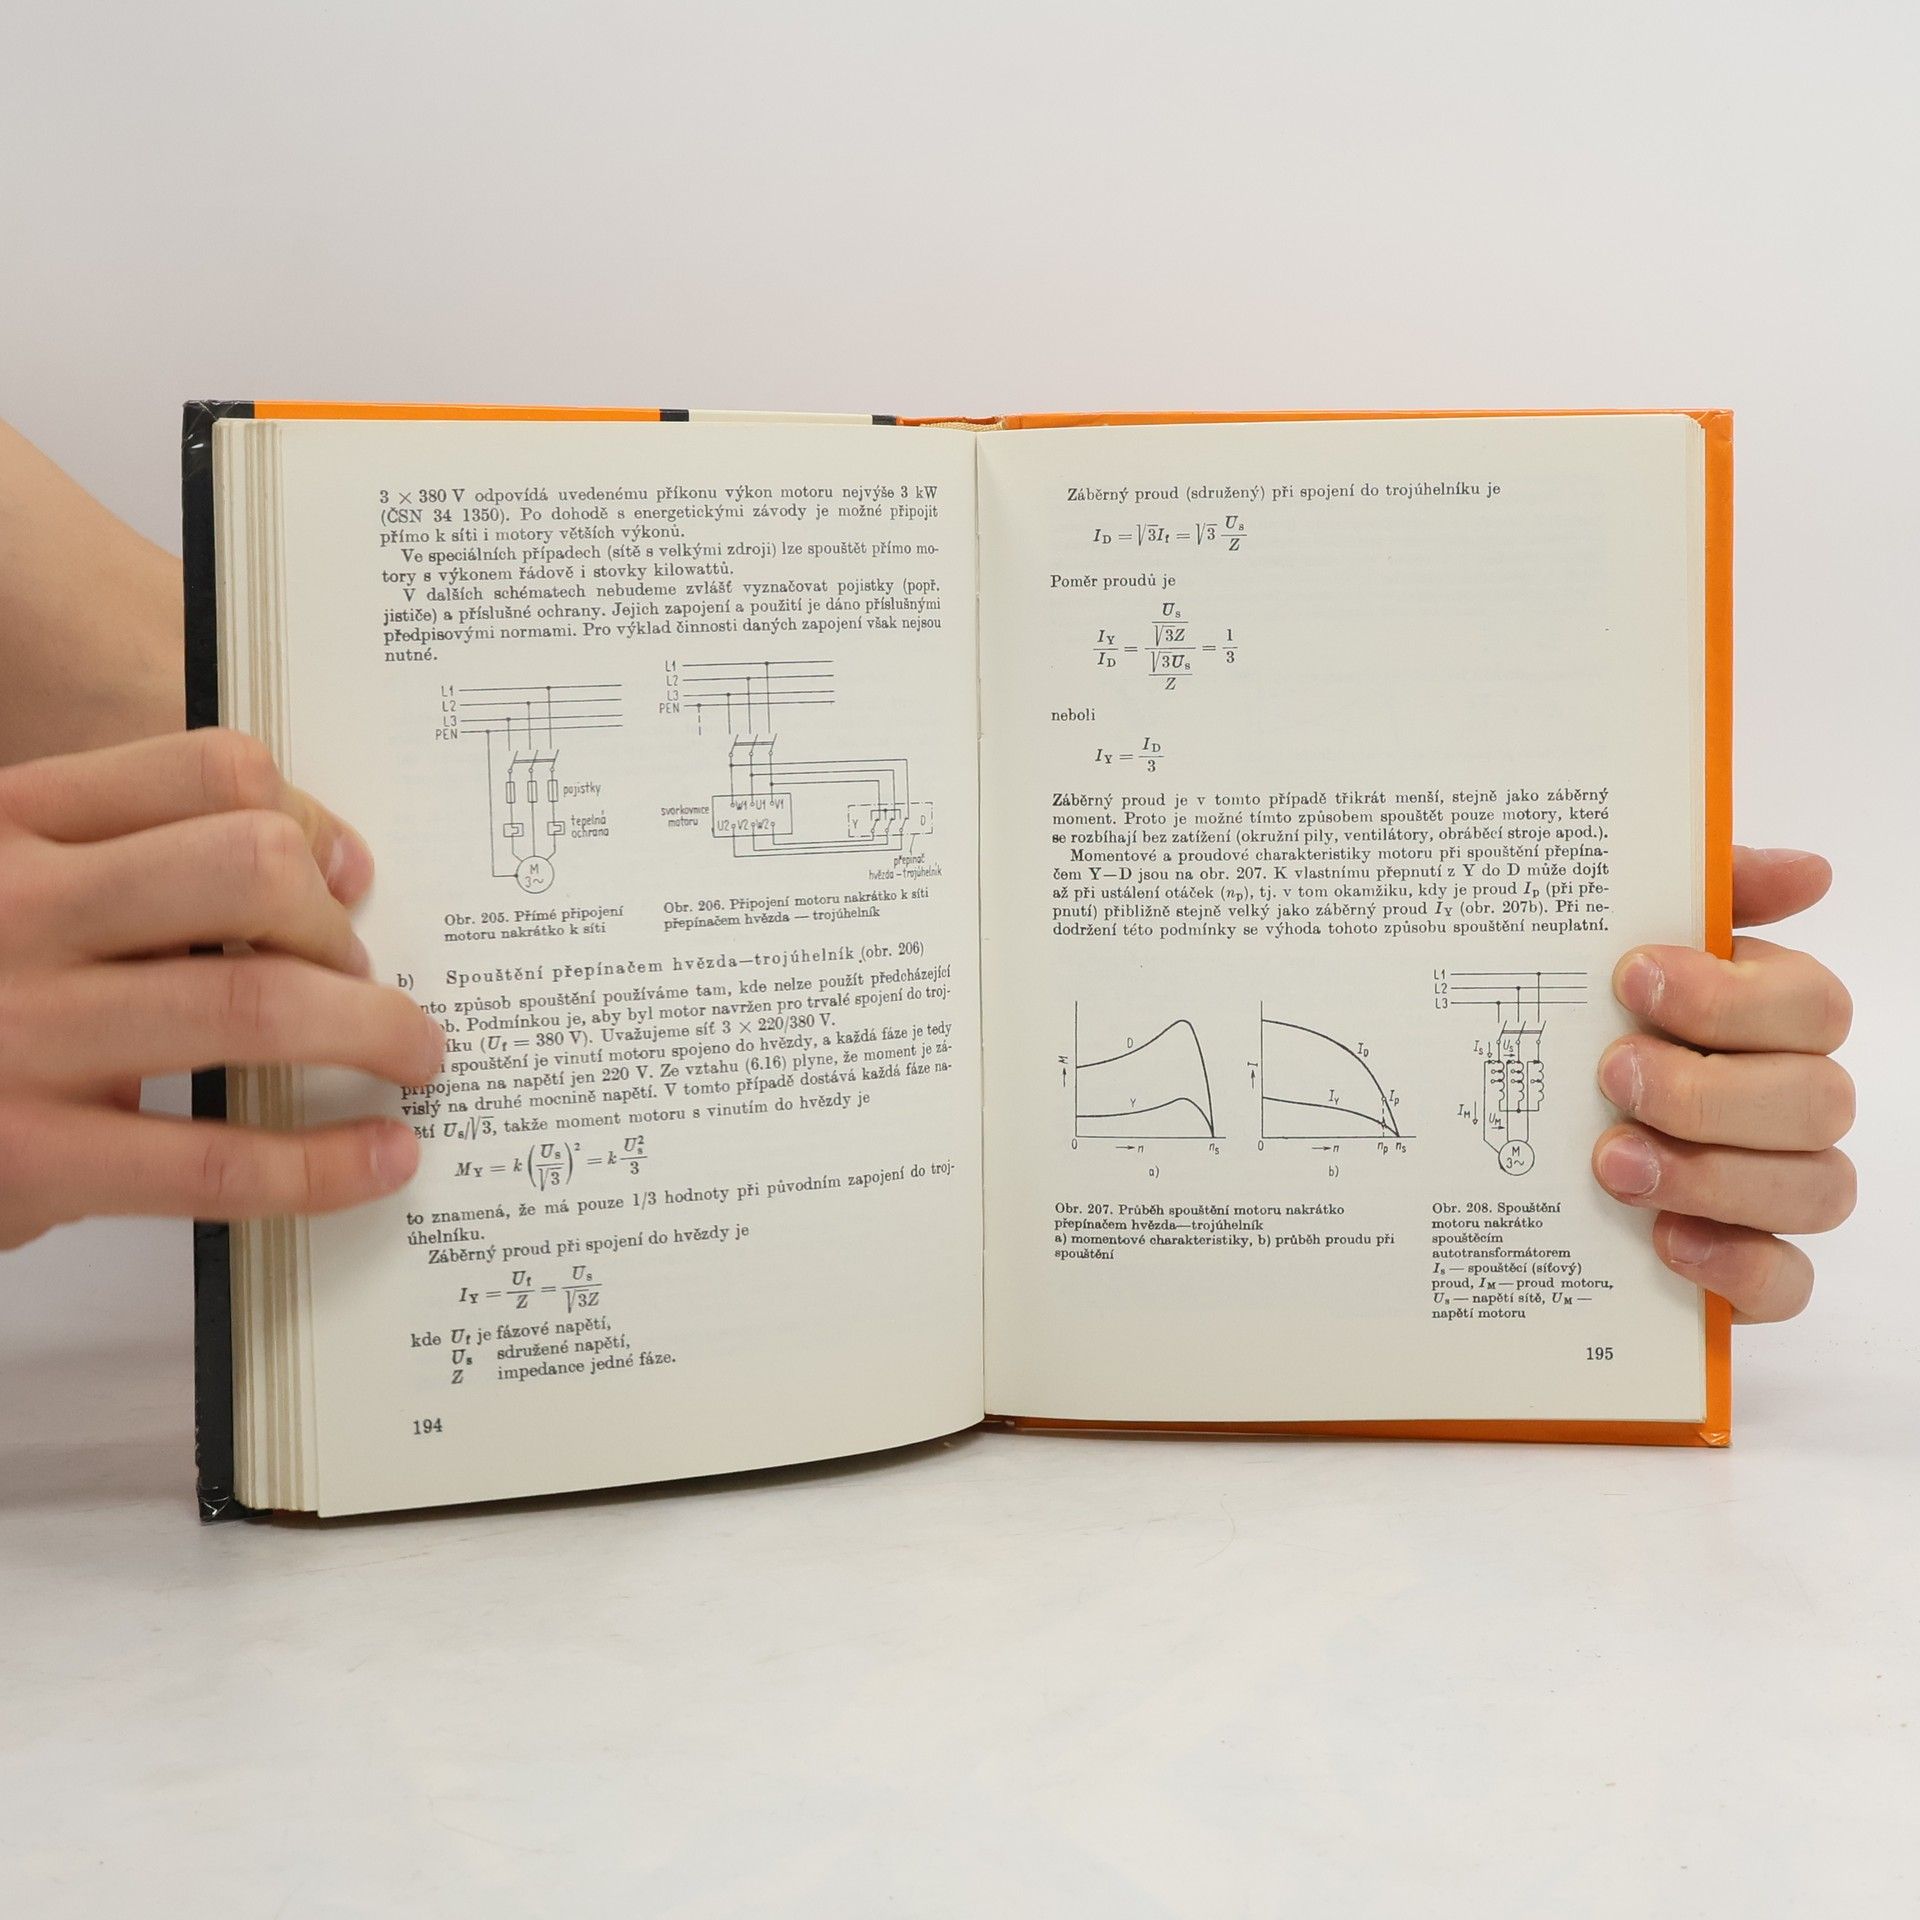 3 × 380 V odpovídá uvedenému příkonu výkon motoru nejvýše 3 kW
(ČSN 34 1350). Po dohodě s energetickými závody je možné připojit
přímo k síti i motory větších výkonů.
Ve speciálních případech (sítě s velkými zdroji) lze spouštět přímo mo-
tory s výkonem řádově i stovky kilowattů.
V dalších schématech nebudeme zvlášť vyznačovat pojistky (popř.
jističe) a příslušné ochrany. Jejich zapojení a použití je dáno příslušnými
předpisovými normami. Pro výklad činnosti daných zapojení však nejsou
nutné.
L1
L2
L3
PEN
pojistky
tepelná
ochrana
M
3~
Obr. 205. Přímé připojení
motoru nakrátko k síti
L1
L2
L3
PEN
svorkovnice
motoru
W1 U1 V1
U2 V2 W2
Y D
přepínač
hvězda – trojúhelník
Obr. 206. Připojení motoru nakrátko k síti
přepínačem hvězda — trojúhelník
b) Spouštění přepínačem hvězda—trojúhelník (obr. 206)
nto způsob spouštění používáme tam, kde nelze použít předcházející
b. Podmínkou je, aby byl motor navržen pro trvalé spojení do troj-
íku (Uf = 380 V). Uvažujeme síť 3 × 220/380 V.
i spouštění je vinutí motoru spojeno do hvězdy, a každá fáze je tedy
připojena na napětí jen 220 V. Ze vztahu (6.16) plyne, že moment je zá-
vislý na druhé mocnině napětí. V tomto případě dostává každá fáze na-
ětí Us/√3, takže moment motoru s vinutím do hvězdy je
MY = k (Us/√3)² = k Us²/3
to znamená, že má pouze 1/3 hodnoty při původním zapojení do troj-
úhelníku.
Záběrný proud při spojení do hvězdy je
IY = Uf/Z = Us/√3Z
kde Uf je fázové napětí,
Us sdružené napětí,
Z impedance jedné fáze.
194
Záběrný proud (sdružený) při spojení do trojúhelníku je
ID = √3If = √3 Us/Z
Poměr proudů je
IY/ID = (Us/√3Z)/(√3Us/Z) = 1/3
neboli
IY = ID/3
Záběrný proud je v tomto případě třikrát menší, stejně jako záběrný
moment. Proto je možné tímto způsobem spouštět pouze motory, které
se rozbíhají bez zatížení (okružní pily, ventilátory, obráběcí stroje apod.).
Momentové a proudové charakteristiky motoru při spouštění přepína-
čem Y—D jsou na obr. 207. K vlastnímu přepnutí z Y do D může dojít
až při ustálení otáček (np), tj. v tom okamžiku, kdy je proud Ip (při pře-
pnutí) přibližně stejně velký jako záběrný proud IY (obr. 207b). Při ne-
dodržení této podmínky se výhoda tohoto způsobu spouštění neuplatní.
M
D
Y
0 n ns
a)
I
ID
IY
Ip
0 n np ns
b)
Obr. 207. Průběh spouštění motoru nakrátko
přepínačem hvězda—trojúhelník
a) momentové charakteristiky, b) průběh proudu při
spouštění
L1
L2
L3
Is Us
IM
UM
M
3~
Obr. 208. Spouštění
motoru nakrátko
spouštěcím
autotransformátorem
Is — spouštěcí (síťový)
proud, IM — proud motoru,
Us — napětí sítě, UM —
napětí motoru
195